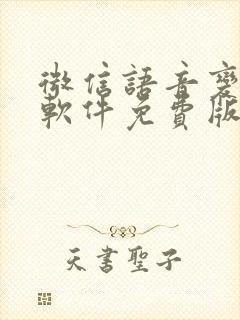 微信語音變
軟件免費版
天書聖子